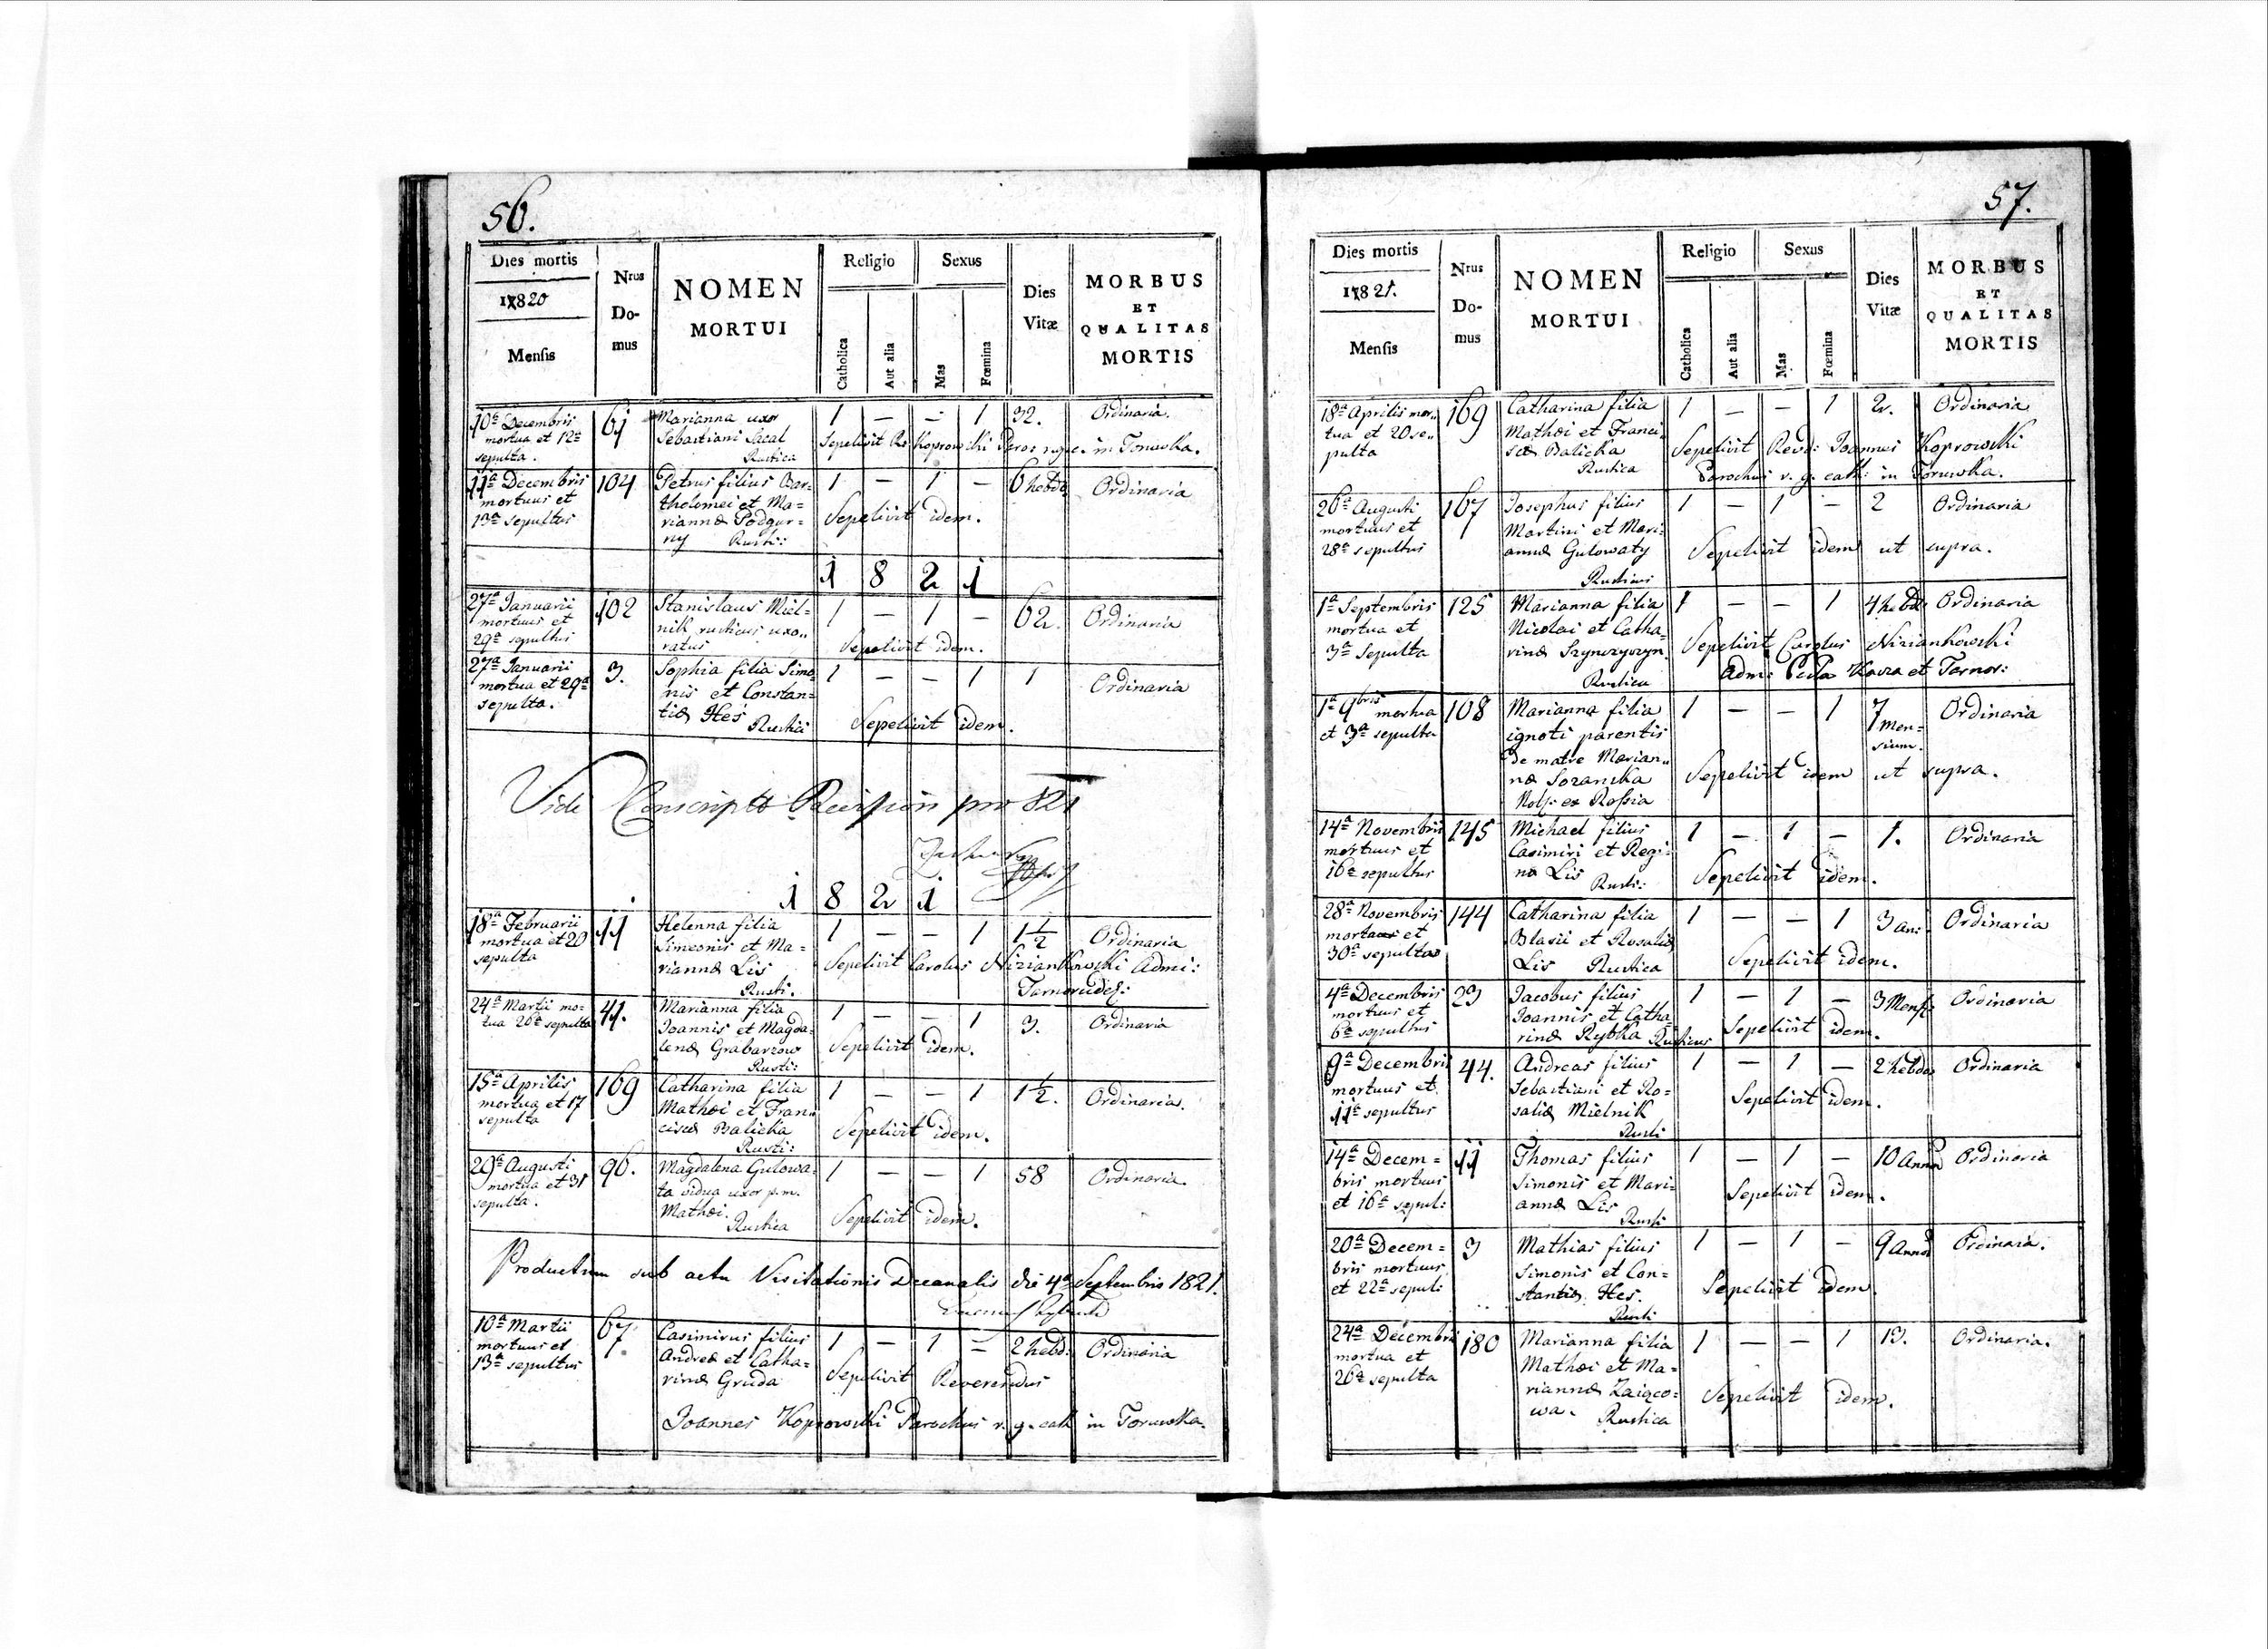 56.
Dies mortis
Nrus
Do-
mus
NOMEN
MORTUI
Religio
Sexus
Dies
Vitæ
MORBUS
ET
QUALITAS
MORTIS
1820
Mensis
Catholica
Aut alia
Mas
Fœmina
10a Decembris 61 Marianna uxor 1 — — 1 32. Ordinaria.
mortua et 12a Sebastiani
sepulta. Rustica
Sepelivit Koprowski in Toruwka.
11a Decembris 104 Petrus filius Bar= 1 — 1 — 6 hebd. Ordinaria
mortuus et tholomei et Ma=
13a sepultus riannæ Podgur=
ny Rusti:
Sepelivit idem.
1 8 2 1
27a Januarii 102 Stanislaus Miel= 1 — 1 — 62. Ordinaria
mortuus et nik rusticus uxo„
29a sepultus ratus
Sepelivit idem.
27a Januarii 3. Sophia filia Simo 1 — — 1 1 Ordinaria
mortua et 29a nis et Constan=
sepulta. tiæ Hes Rustici
Sepelivit idem.
Vidi pro 821
1 8 2 1
18a Februarii 11 Helenna filia 1 — — 1 1 1/2 Ordinaria
mortua et 20 Simeonis et Ma=
sepulta riannæ Lis
Rusti.
Sepelivit Carolus Niziankowski Admi:
24a Martii mo- 41. Marianna filia 1 — — 1 3. Ordinaria
tua 26a sepulta Joannis et Magda=
lenæ Grabarzow
Rusti:
Sepelivit idem.
15a Aprilis 169 Catharina filia 1 — — 1 1 1/2. Ordinaria.
mortua et 17 Mathæi et Fran„
sepulta ciscæ Balicka
Rusti:
Sepelivit idem.
29a Augusti 96. Magdalena Gulowa= 1 — — 1 58 Ordinaria.
mortua et 31 ta vidua uxor p.m.
sepulta. Mathæi.
Rustica
Sepelivit idem.
Productum sub actu Visitationis Decanalis die 4a Septembris 1821.
10a Martii 67. Casimirus filius 1 — 1 — 2 hebd: Ordinaria
mortuus et Andreæ et Catha=
13a sepultus rinæ Gruda
Sepelivit Reverendus
Joannes Koprowski Parochus r. g. cath in Toruwka.
57.
Dies mortis
Nrus
Do-
mus
NOMEN
MORTUI
Religio
Sexus
Dies
Vitæ
MORBUS
ET
QUALITAS
MORTIS
1821.
Mensis
Catholica
Aut alia
Mas
Fœmina
18a Aprilis mor„ 169 Catharina filia 1 — — 1 2. Ordinaria
tua et 20 se„ Mathæi et Franci
pulta scæ Balicka
Rustica
Sepelivit Revd: Joannes Koprowski
Parochus r. g. cath: in Toruwka.
26a Augusti 167 Josephus filius 1 — 1 — 2 Ordinaria
mortuus et Martini et Mari=
28a sepultus annæ Gulowaty
Rustici
Sepelivit idem ut supra.
1a Septembris 125 Marianna filia 1 — — 1 4 hebd: Ordinaria
mortua et Nicolai et Catha=
3a Sepulta rinæ
Rustica
Sepelivit Carolus Niziankowski
Adm: et Tarnor:
1a 9bris mortua 108 Marianna filia 1 — — 1 7 Men= Ordinaria
et 3a sepulta ignoti parentis sium.
de matre Marian„
na Soranska
ex Rossia
Sepelivit idem ut supra.
14a Novembris 145 Michael filius 1 — 1 — 1. Ordinaria
mortuus et Casimiri et Regi=
16a sepultus na Lis Rusti:
Sepelivit idem.
28a Novembris 144 Catharina filia 1 — — 1 3 ani Ordinaria
et Blasii et Rosaliæ
30a sepulta Lis Rustica
Sepelivit idem.
4a Decembris 23 Jacobus filius 1 — 1 — 3 Mens: Ordinaria
mortuus et Joannis et Catha
6a sepultus rinæ Rybka Rusticus
Sepelivit idem.
9a Decembris 44. Andreas filius 1 — 1 — 2 hebd Ordinaria
mortuus et Sebastiani et Ro=
11a sepultus saliæ Mielnik
Rusti
Sepelivit idem.
14a Decem= 11 Thomas filius 1 — 1 — 10 Ordinaria
bris mortuus Simonis et Mari=
et 16a sepul: annæ Lis
Rusti
Sepelivit idem.
20a Decem= 3 Mathias filius 1 — 1 — 9 Ordinaria.
bris mortuus Simonis et Con=
et 22a sepul: stantiæ Hes.
Rusti
Sepelivit idem
24a Decembri 180 Marianna filia 1 — — 1 13. Ordinaria.
mortua et Mathæi et Ma=
26a sepulta riannæ Zaięco=
wa. Rustica
Sepelivit idem.